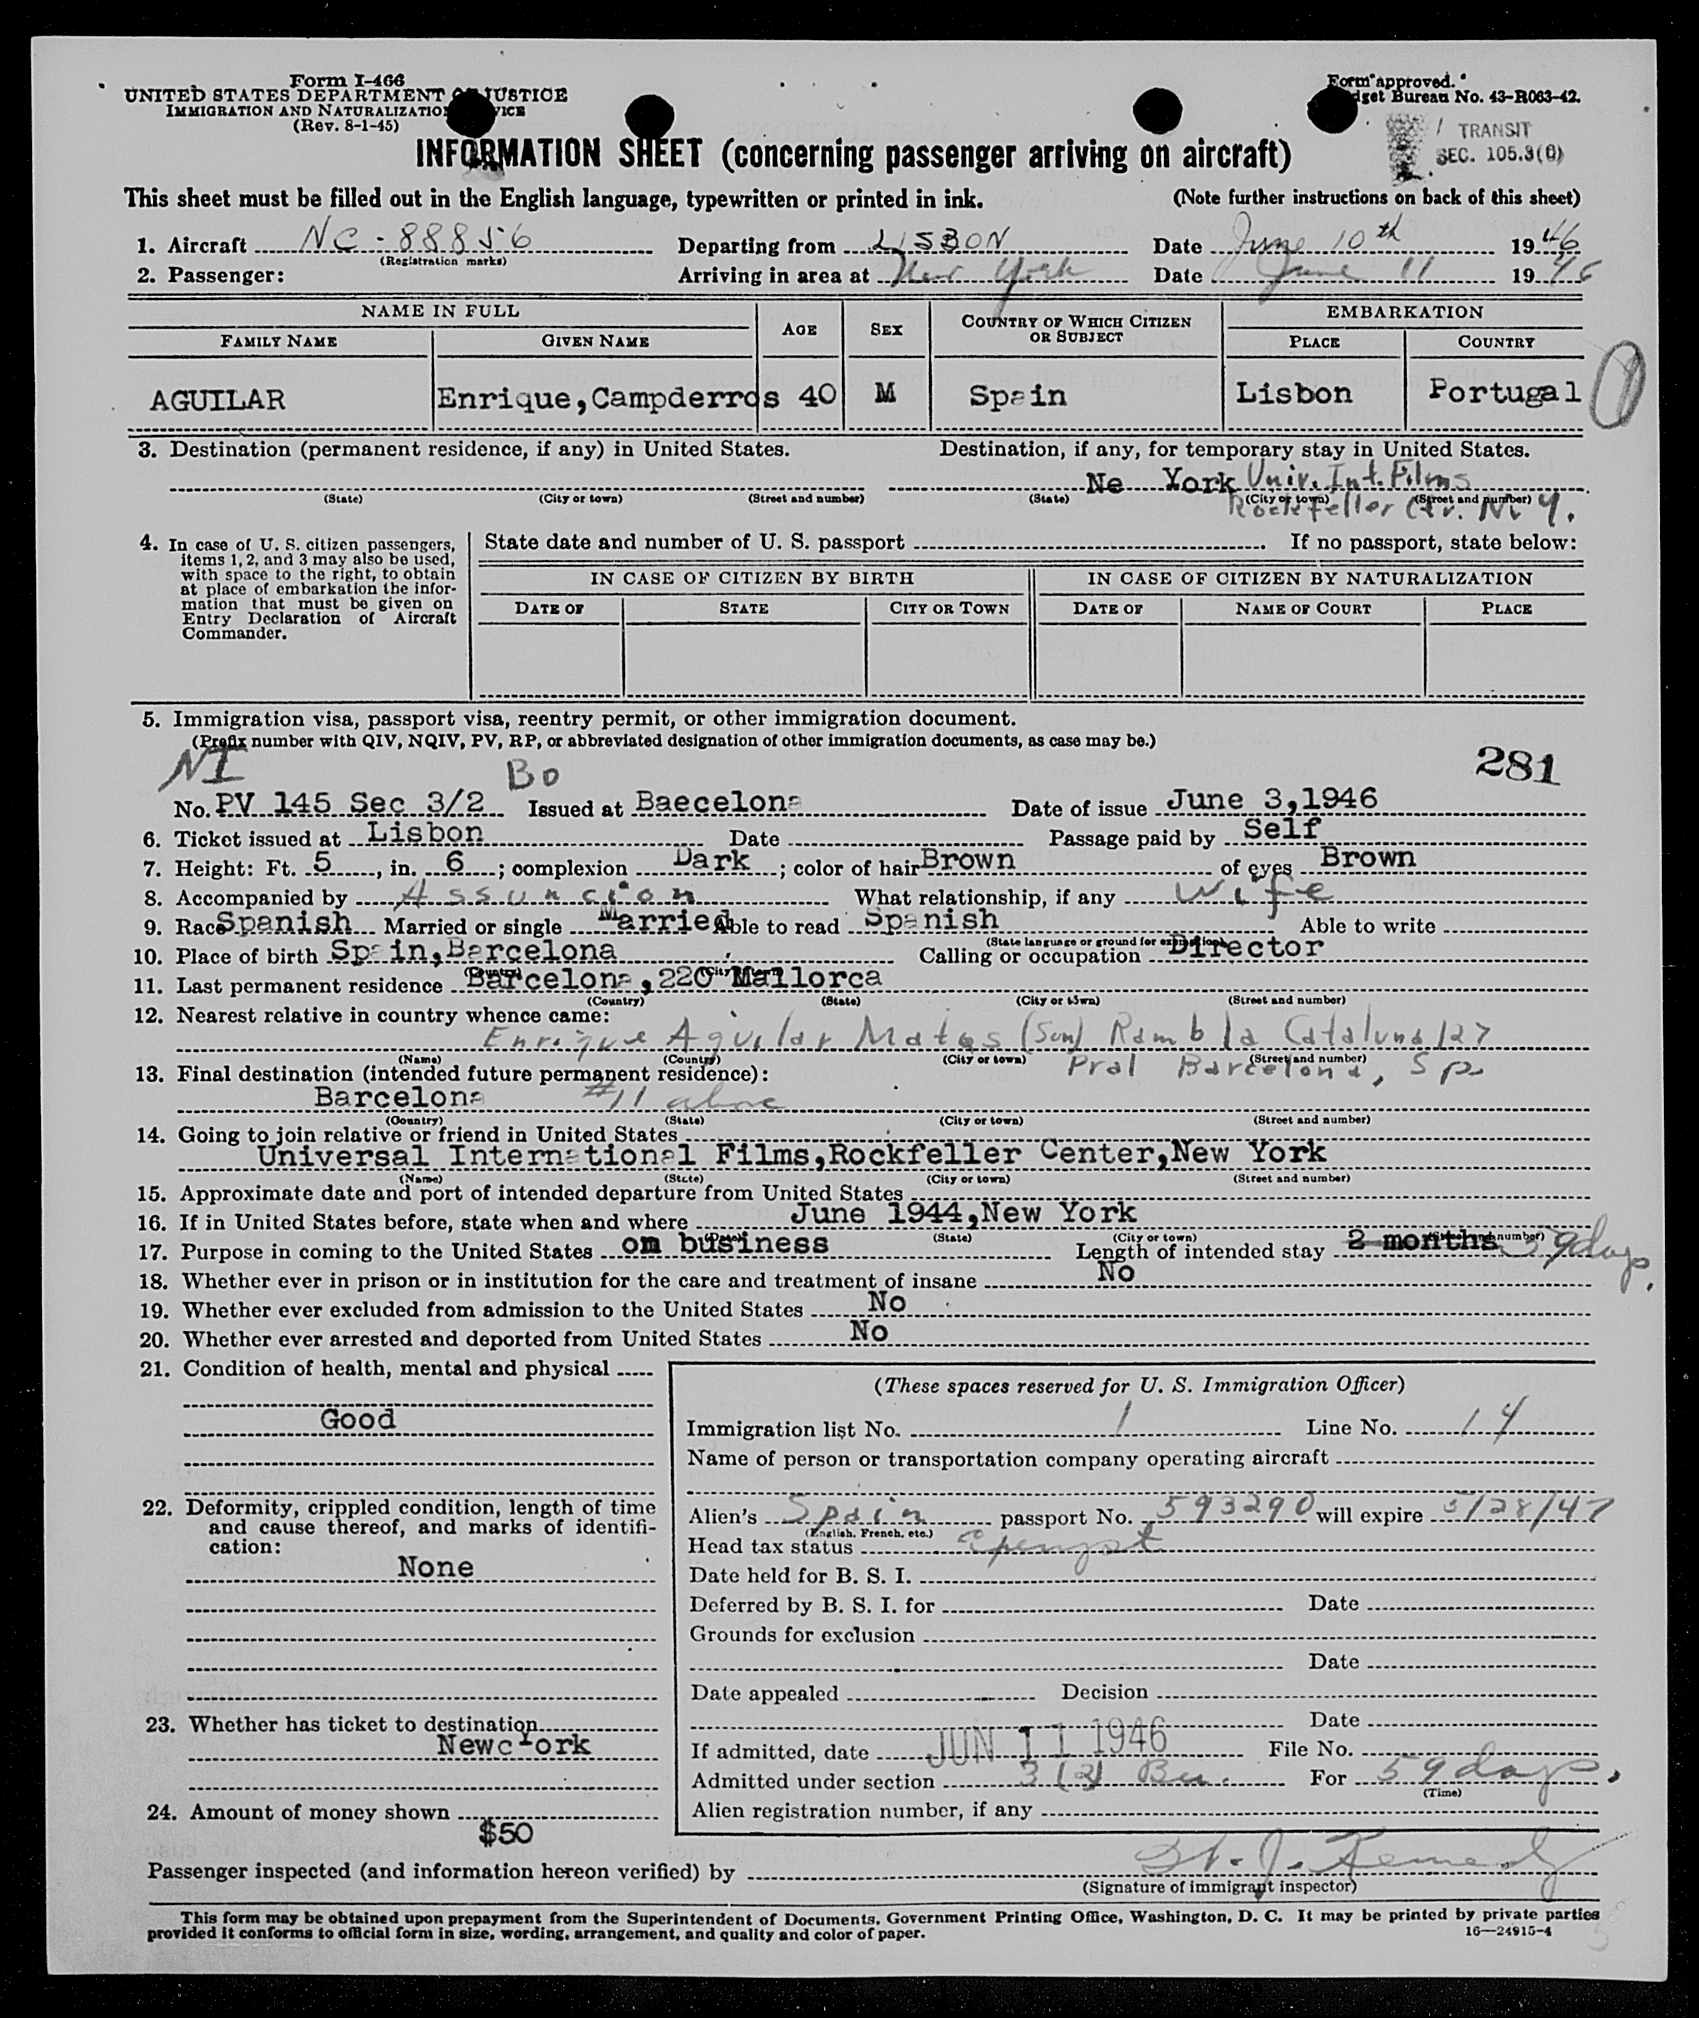 Form I-466
UNITED STATES DEPARTMENT OF JUSTICE
IMMIGRATION AND NATURALIZATION SERVICE
(Rev. 8-1-45)
Form approved.
Budget Bureau No. 43-R063-42.
TRANSIT
SEC. 105.3(B)
INFORMATION SHEET (concerning passenger arriving on aircraft)
This sheet must be filled out in the English language, typewritten or printed in ink. (Note further instructions on back of this sheet)
1. Aircraft NC-88856 Departing from LISBON Date June 10th 1946
(Registration marks)
2. Passenger: Arriving in area at New York Date June 11 1946
NAME IN FULL AGE SEX COUNTRY OF WHICH CITIZEN OR SUBJECT EMBARKATION
FAMILY NAME GIVEN NAME PLACE COUNTRY
AGUILAR Enrique,Campderros 40 M Spain Lisbon Portugal
3. Destination (permanent residence, if any) in United States. Destination, if any, for temporary stay in United States.
Ne York Univ. Int. Films
(State) (City or town) (Street and number) (State) (City or town) (Street and number)
Rockfeller Ctr. N.Y.
4. In case of U. S. citizen passengers, items 1, 2, and 3 may also be used, with space to the right, to obtain at place of embarkation the information that must be given on Entry Declaration of Aircraft Commander.
State date and number of U. S. passport . If no passport, state below:
IN CASE OF CITIZEN BY BIRTH IN CASE OF CITIZEN BY NATURALIZATION
DATE OF STATE CITY OR TOWN DATE OF NAME OF COURT PLACE
5. Immigration visa, passport visa, reentry permit, or other immigration document.
(Prefix number with QIV, NQIV, PV, RP, or abbreviated designation of other immigration documents, as case may be.)
NI Bo 281
No. PV 145 Sec 3/2 Issued at Baecelona Date of issue June 3,1946
6. Ticket issued at Lisbon Date Passage paid by Self
7. Height: Ft. 5, in. 6; complexion Dark; color of hair Brown of eyes Brown
8. Accompanied by Assuncion What relationship, if any wife
9. Race Spanish Married or single Married Able to read Spanish Able to write
(State language or ground for exemption)
10. Place of birth Spain,Barcelona Calling or occupation Director
(Country) (City or town)
11. Last permanent residence Barcelona,220 Mallorca
(Country) (State) (City or town) (Street and number)
12. Nearest relative in country whence came:
Enrique Aguilar Matas (Son) Rambla Cataluna 127
(Name) (Country) (City or town) (Street and number)
Pral Barcelona, Sp.
13. Final destination (intended future permanent residence):
Barcelona #11 above
(Country) (State) (City or town) (Street and number)
14. Going to join relative or friend in United States
Universal International Films,Rockfeller Center,New York
(Name) (State) (City or town) (Street and number)
15. Approximate date and port of intended departure from United States
16. If in United States before, state when and where June 1944,New York
(Date) (State) (City or town) (Street and number)
17. Purpose in coming to the United States on business Length of intended stay 2 months 59 days.
18. Whether ever in prison or in institution for the care and treatment of insane No
19. Whether ever excluded from admission to the United States No
20. Whether ever arrested and deported from United States No
21. Condition of health, mental and physical
Good
22. Deformity, crippled condition, length of time and cause thereof, and marks of identification:
None
23. Whether has ticket to destination
Newc York
24. Amount of money shown
$50
(These spaces reserved for U. S. Immigration Officer)
Immigration list No. 1 Line No. 14
Name of person or transportation company operating aircraft
Alien's Spain passport No. 593290 will expire 5/28/47
(English, French, etc.)
Head tax status Exempt
Date held for B. S. I.
Deferred by B. S. I. for Date
Grounds for exclusion
Date
Date appealed Decision
Date
If admitted, date JUN 11 1946 File No.
Admitted under section 3 (2) Bu. For 59 days.
(Time)
Alien registration number, if any
Passenger inspected (and information hereon verified) by J. Kennedy
(Signature of immigrant inspector)
This form may be obtained upon prepayment from the Superintendent of Documents, Government Printing Office, Washington, D. C. It may be printed by private parties
provided it conforms to official form in size, wording, arrangement, and quality and color of paper. 16—24915-4